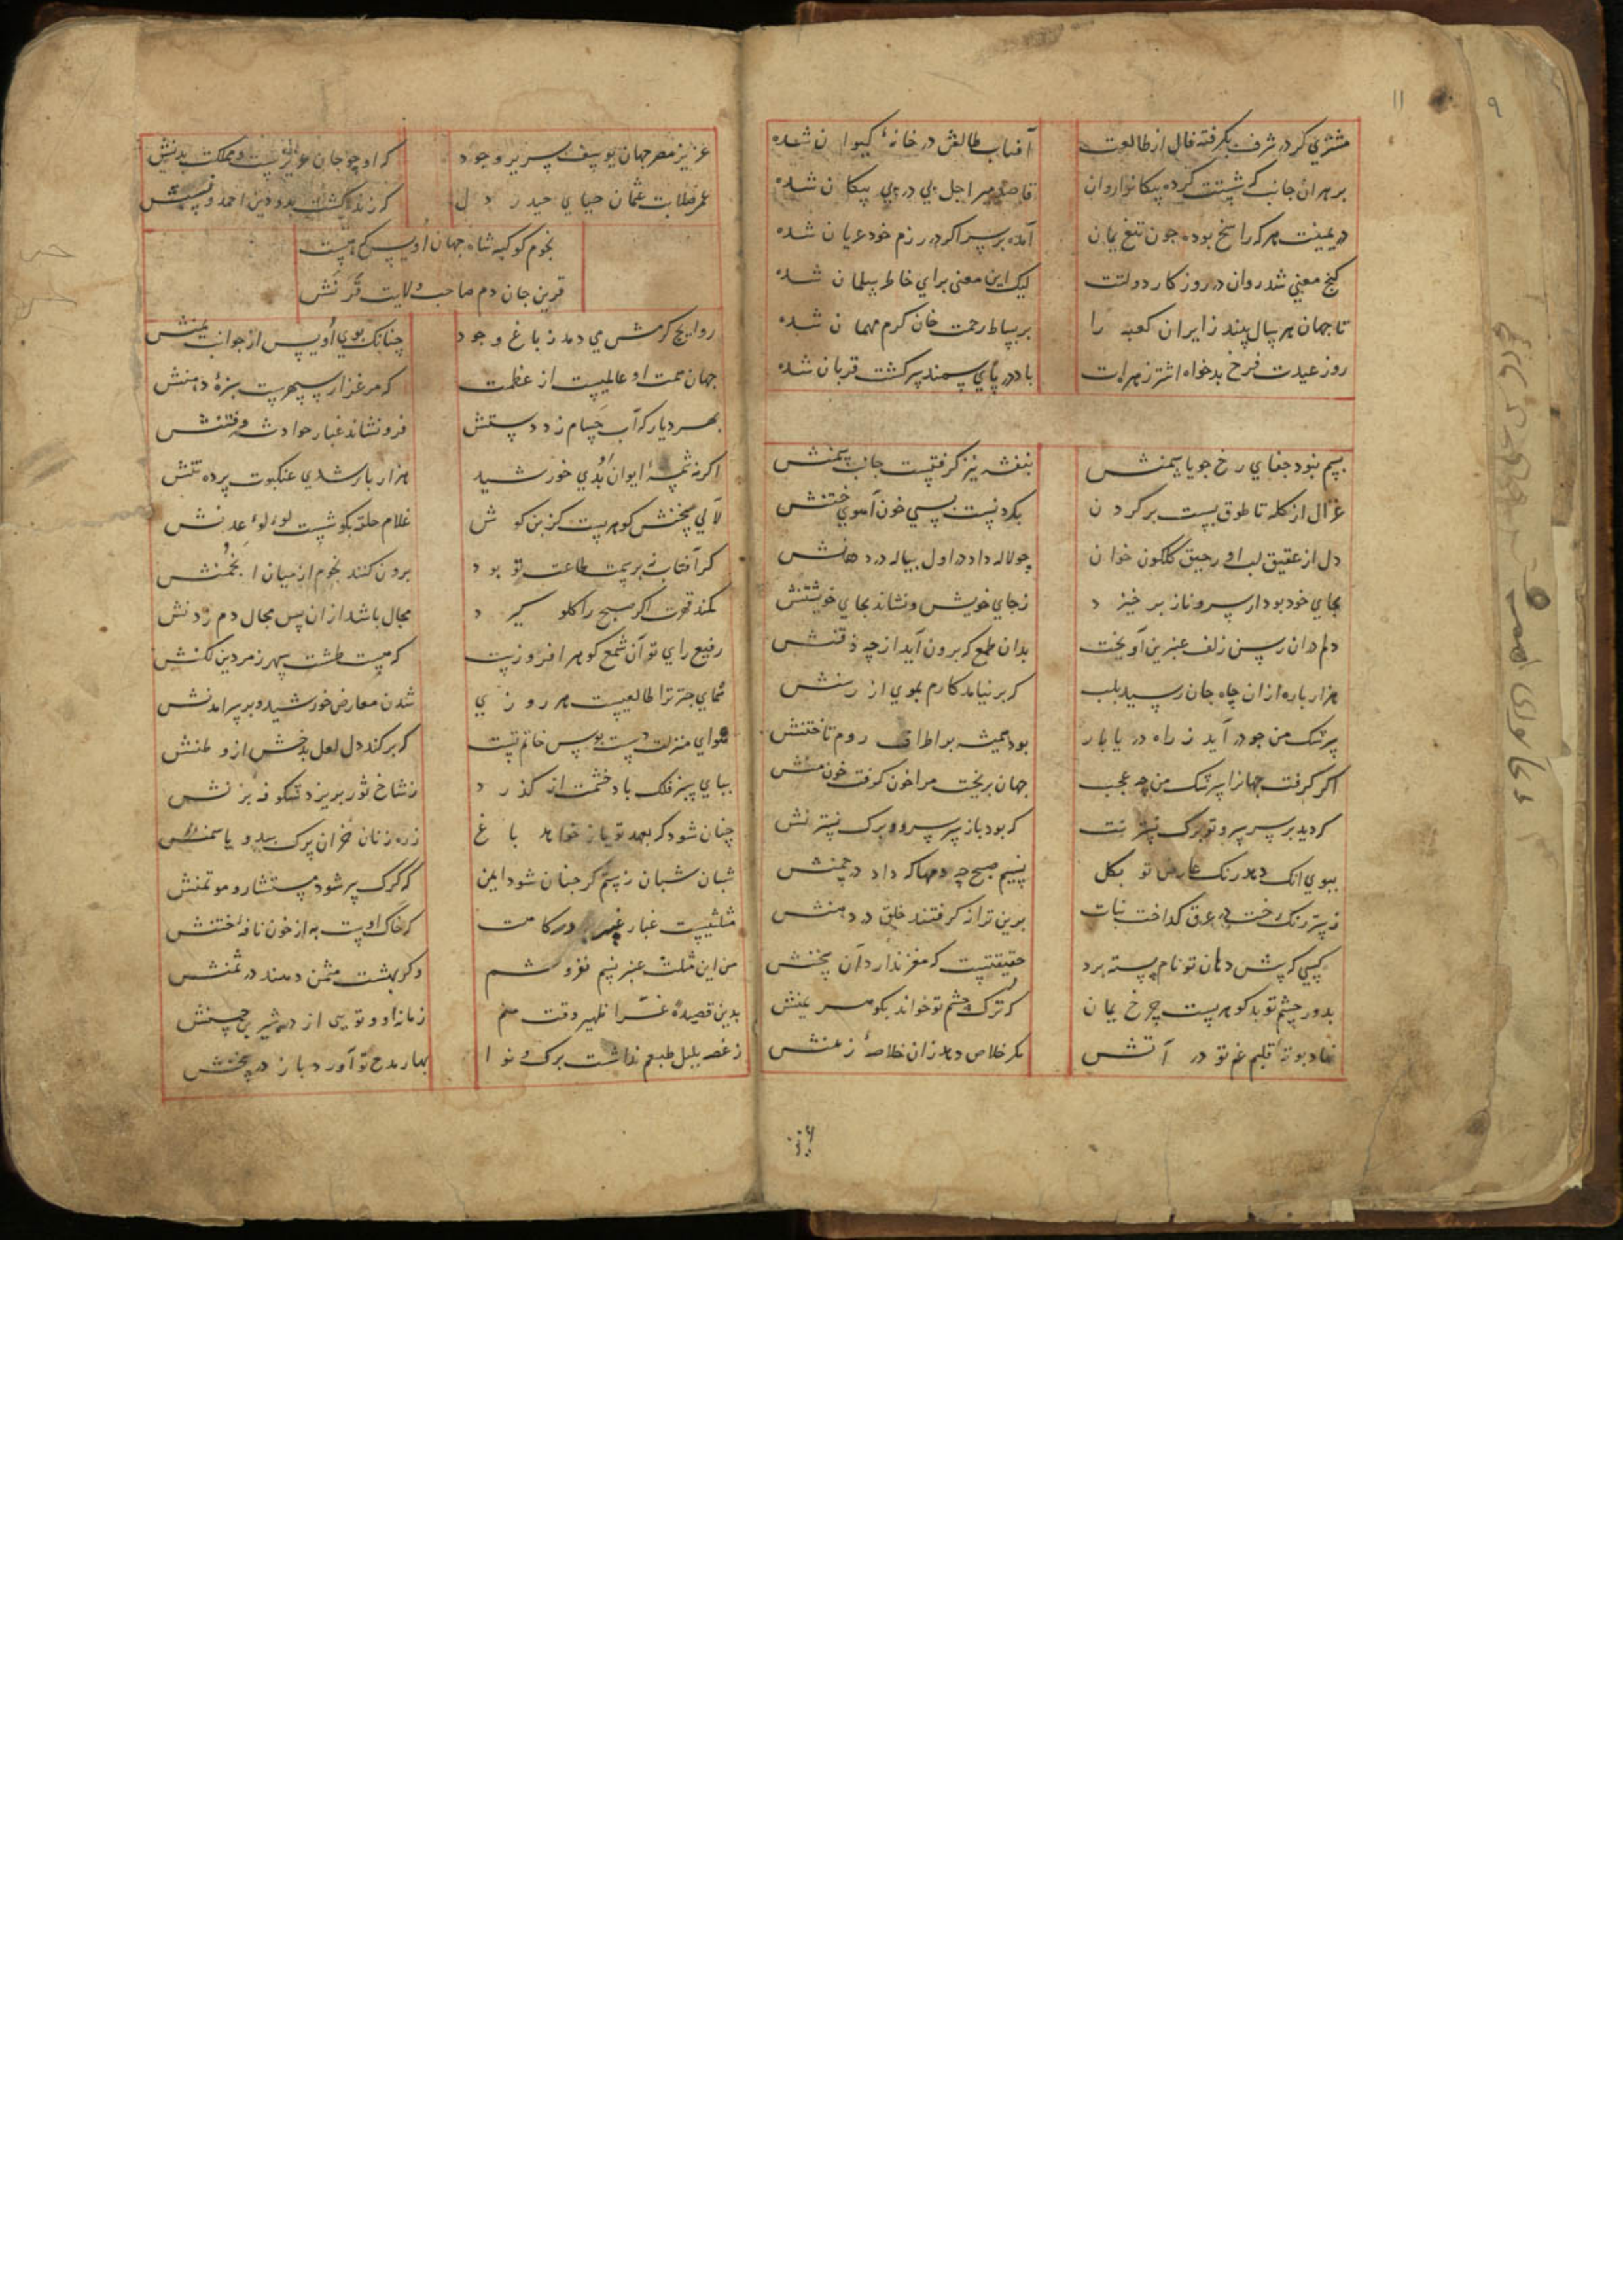 ۹
۱۱
مشتری کرد در شرف بگرفته فال از طالعت
آفتاب طالعش در خانهٔ کیوان شده
بر هران جانب که شستت کرده پیکانرا روان
قاصد میر اجل پی در پی پیکان شده
در یمینت هرکه راسخ بوده جون تیغ یمان
آمده بر سر اکر در رزم خود عریان شده
کنج معنی شد روان در روزکار دولتت
لیک این معنی برای خاطر سلمان شده
تا جهان هر سال بیند زایران کعبه را
بر بساط رحمت خان کرم مهمان شده
روز عیدت فرخ بدخواه اشتر زهرات
باد در پای سمند سرکشت قربان شده
بسم نبود جفای رخ جو یاسمنش
بنفشه نیز کرفتست جانب سمنش
غزال از کله تا طوق بست بر کردن
بکردنست بسی خون آهوی ختنش
دل از عقیق لب او رحیق کلکون خوان
چو لاله داد در اول پیاله در دهانش
بجای خود بود ار سرو ناز بر خیزد
ز جای خویش و نشاند بجای خویشتنش
دلم دران رسن زلف عنبرین آویخت
بدان طمع که برون آید از چه ذقنش
هزار باره ازان چاه جان رسید بلب
که بر نیامد کارم بموی از رسنش
سرشک من جو در آید ز راه دریا بار
بود همیشه بر اطراف روم تاختنش
اکر کرفت جهانرا سرشک من چه عجب
جهان بریخت مرا خون کرفت خون منش
که دید بر سر سرو تو برک نسترنت
که بود باز بر سرو و برک نسترنش
ببوی انک دهد رنک عارض تو بکل
نسیم صبح چه دمها که داد در چمنش
برین ترانه کرفتند خلق در دهنش
کسی که پیش دهان تو نام پسته برد
حقیقتیست که مغز ندارد آن سخنش
بدور چشم تو بد کوهرست چرخ یمان
که ترک چشم تو خواند بکوهر یمنش
نهاد بوتهٔ قلبم غم تو در آتش
مکر خلاص دهد زان خلاصهٔ زمنش
عزیز مصر جهان یوسف سریر وجود
که او چو جان عزیزست و مملکت بدنش
عمر صلابت عثمان حیای حیدر دل
که زنده کشت بدو دین احمد و سننش
نجوم کوکبه شاه جهان اویس که هست
قرین جان دم صاحب ولایت قرنش
روایح کرمش می دمد ز باغ وجود
چنانک بوی اویس از جوانب یمنش
جهان همت او عالمیست از عظمت
که مرغزار سپهرست سبزهٔ دمنش
بهر دیار که آب حسام زد دستش
فرو نشاند غبار حوادث و فتنش
اکر نه شمسهٔ ایوان او بدی خورشید
هزار بار شدی عنکبوت پرده تنش
لآلی سخنش کوهریست کز بن کوش
غلام حلقه بکوشست لولوء عدنش
کر آفتاب نه بر سمت طاعت تو بود
برون کنند نجوم از میان انجمنش
کمند قهرت اکر صبح را کلو کیرد
مجال باشد ازان پس مجال دم زدنش
رفیع رای تو آن شمع کوهر افروزست
که هست طشت سپهر زمردین لکنش
همای چتر ترا طالعیست هر روزی
شدن معارض خورشید و بر سر امدنش
هوای منزلت دست بوس خاتم تست
که بر کند دل لعل بدخش از وطنش
بپای سبز فلک باد خشمت ار کذرد
ز شاخ ثور بریزد شکوفه بزنش
چنان شود که بعهد تو باز خواهد باغ
زره زنان خزان برک بید و یاسمنش
شبان شبان رستم کر جنان شود ایمن
که کرک پر شود مستشار و موتمنش
مثلثیست غبار درکاهت
که خاک اوست به از خون نافهٔ ختنش
من این مثلث عنبر نسیم نفروشم
وکر بهشت مثمن دهند در ثمنش
بدین قصیدهٔ غرا ظهیر وقت منم
ز غصه بلبل طبعم نداشت برک و نوا
بهار مدح تو آورد باز در سخنش